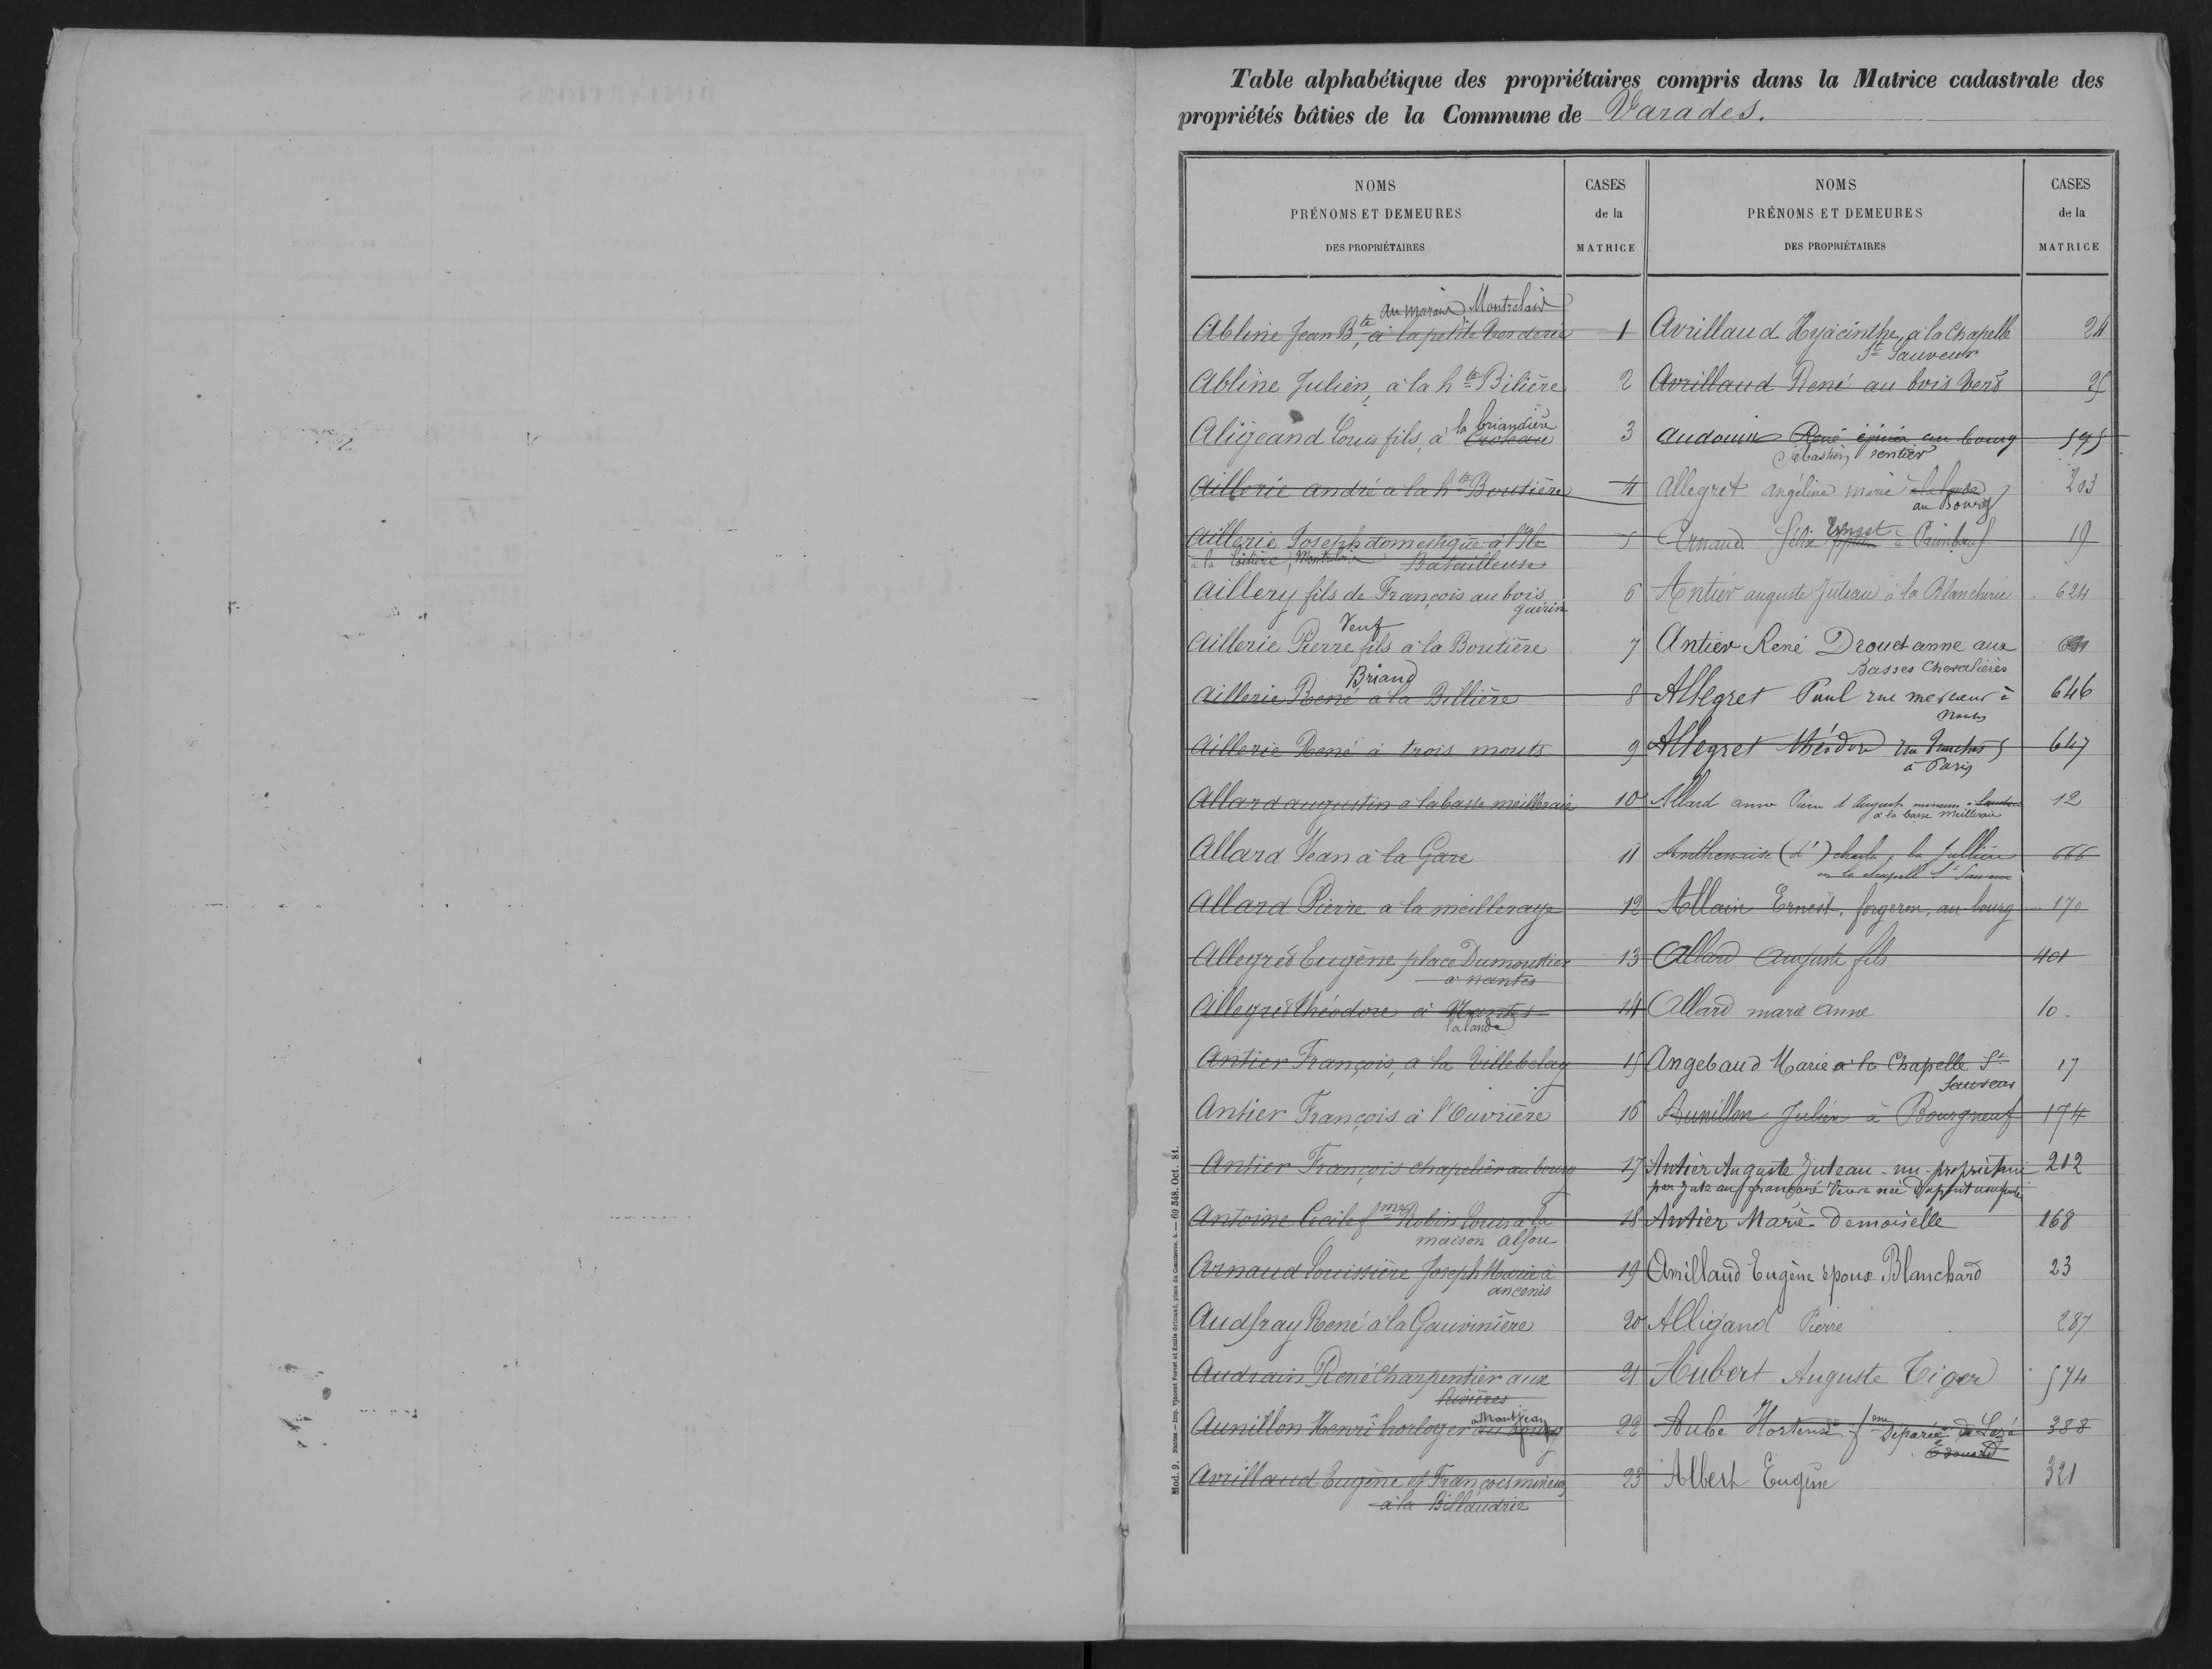 Table alphabétique des propriétaires compris dans la Matrice cadastrale des
propriétés bâties de la Commune de Varades.
NOMS
PRÉNOMS ET DEMEURES
DES PROPRIÉTAIRES
CASES
de la
MATRICE
au marais Montrelais
Abline Jean Bte, à la petite Verderie 1
Abline Julien, à la hte Bilière 2
la briandière
Aligeand Louis fils, à Croteau 3
Aillerie andré à la hte Boutière 4
Aillerie Joseph domestique à l'Ile 5
à la Montrelais Batailleuse
Aillery fils de François au bois 6
guérin
Veuf
Aillerie Pierre fils à la Boutière 7
Briand
Aillerie René à la Billière 8
Aillerie René à trois mouts 9
Allard augustin a la basse meilleraie 10
Allard Jean à la Gare 11
Allard Pierre a la meilleraye 12
Allegret Eugène place Dumoustier 13
à nantes
Allegret théodore à Nantes 14
la lande
Antier François, a la Villebelay 15
Antier François à l'Ouvrière 16
Antier François chapelier au bourg 17
Antoine Cecile fme Robin Louis a la 18
maison alsou
Arnaud Louissière Joseph Marie à 19
ancenis
Audfray René à la Gauvinière 20
Audrain René Charpentier aux 21
Rivières
à Montjean
Aunillon Henri horloger au bourg 22
Avrillaud Eugène et François mineurs 23
à la Billaudrie
NOMS
PRÉNOMS ET DEMEURES
DES PROPRIÉTAIRES
CASES
de la
MATRICE
Avrillaud Hyacinthe, à la Chapelle 24
St Sauveur
Avrillaud René au bois Vert 25
Audouin René épicier au bourg 595
Sébastien rentier
Allegret Angélina marie à la lande 203
au Bourg
Ernest
Arnaud Félix à Paimboeuf 19
Antier auguste Juteau à la Blancherie 624
Antier René Drouet anne aux
Basses Chevalières
Allegret Paul rue mercoeur à 646
Nantes
Allegret théodore rue 647
à Paris
Allard anne Pierre et Auguste mineurs à 12
à la basse Meilleraie
Anthenaise (d') charles, la Jallière 666
en la chapelle St Sauveur
Allain Ernest, forgeron, au bourg 170
Allard Auguste fils 401
Allard marie anne 10
Angebaud Marie à la Chapelle St 17
Sauveur
Aunillon Julien à Bourgneuf 174
Antier Auguste Juteau nu-propriétaire 212
par Juteau Veuve née usufruit
Antier Marie Demoiselle 168
Avrillaud Eugène époux Blanchard 23
Alligand Pierre 287
Aubert Auguste Tiger 574
Aube Hortense fme séparée de Lezé 388
Edouard
Albert Eugène 321
Mod. 9. Nantes — Imp. Vincent Forest et Emile Grimaud, place du Commerce, 4. — 69 348. Oct. 81.